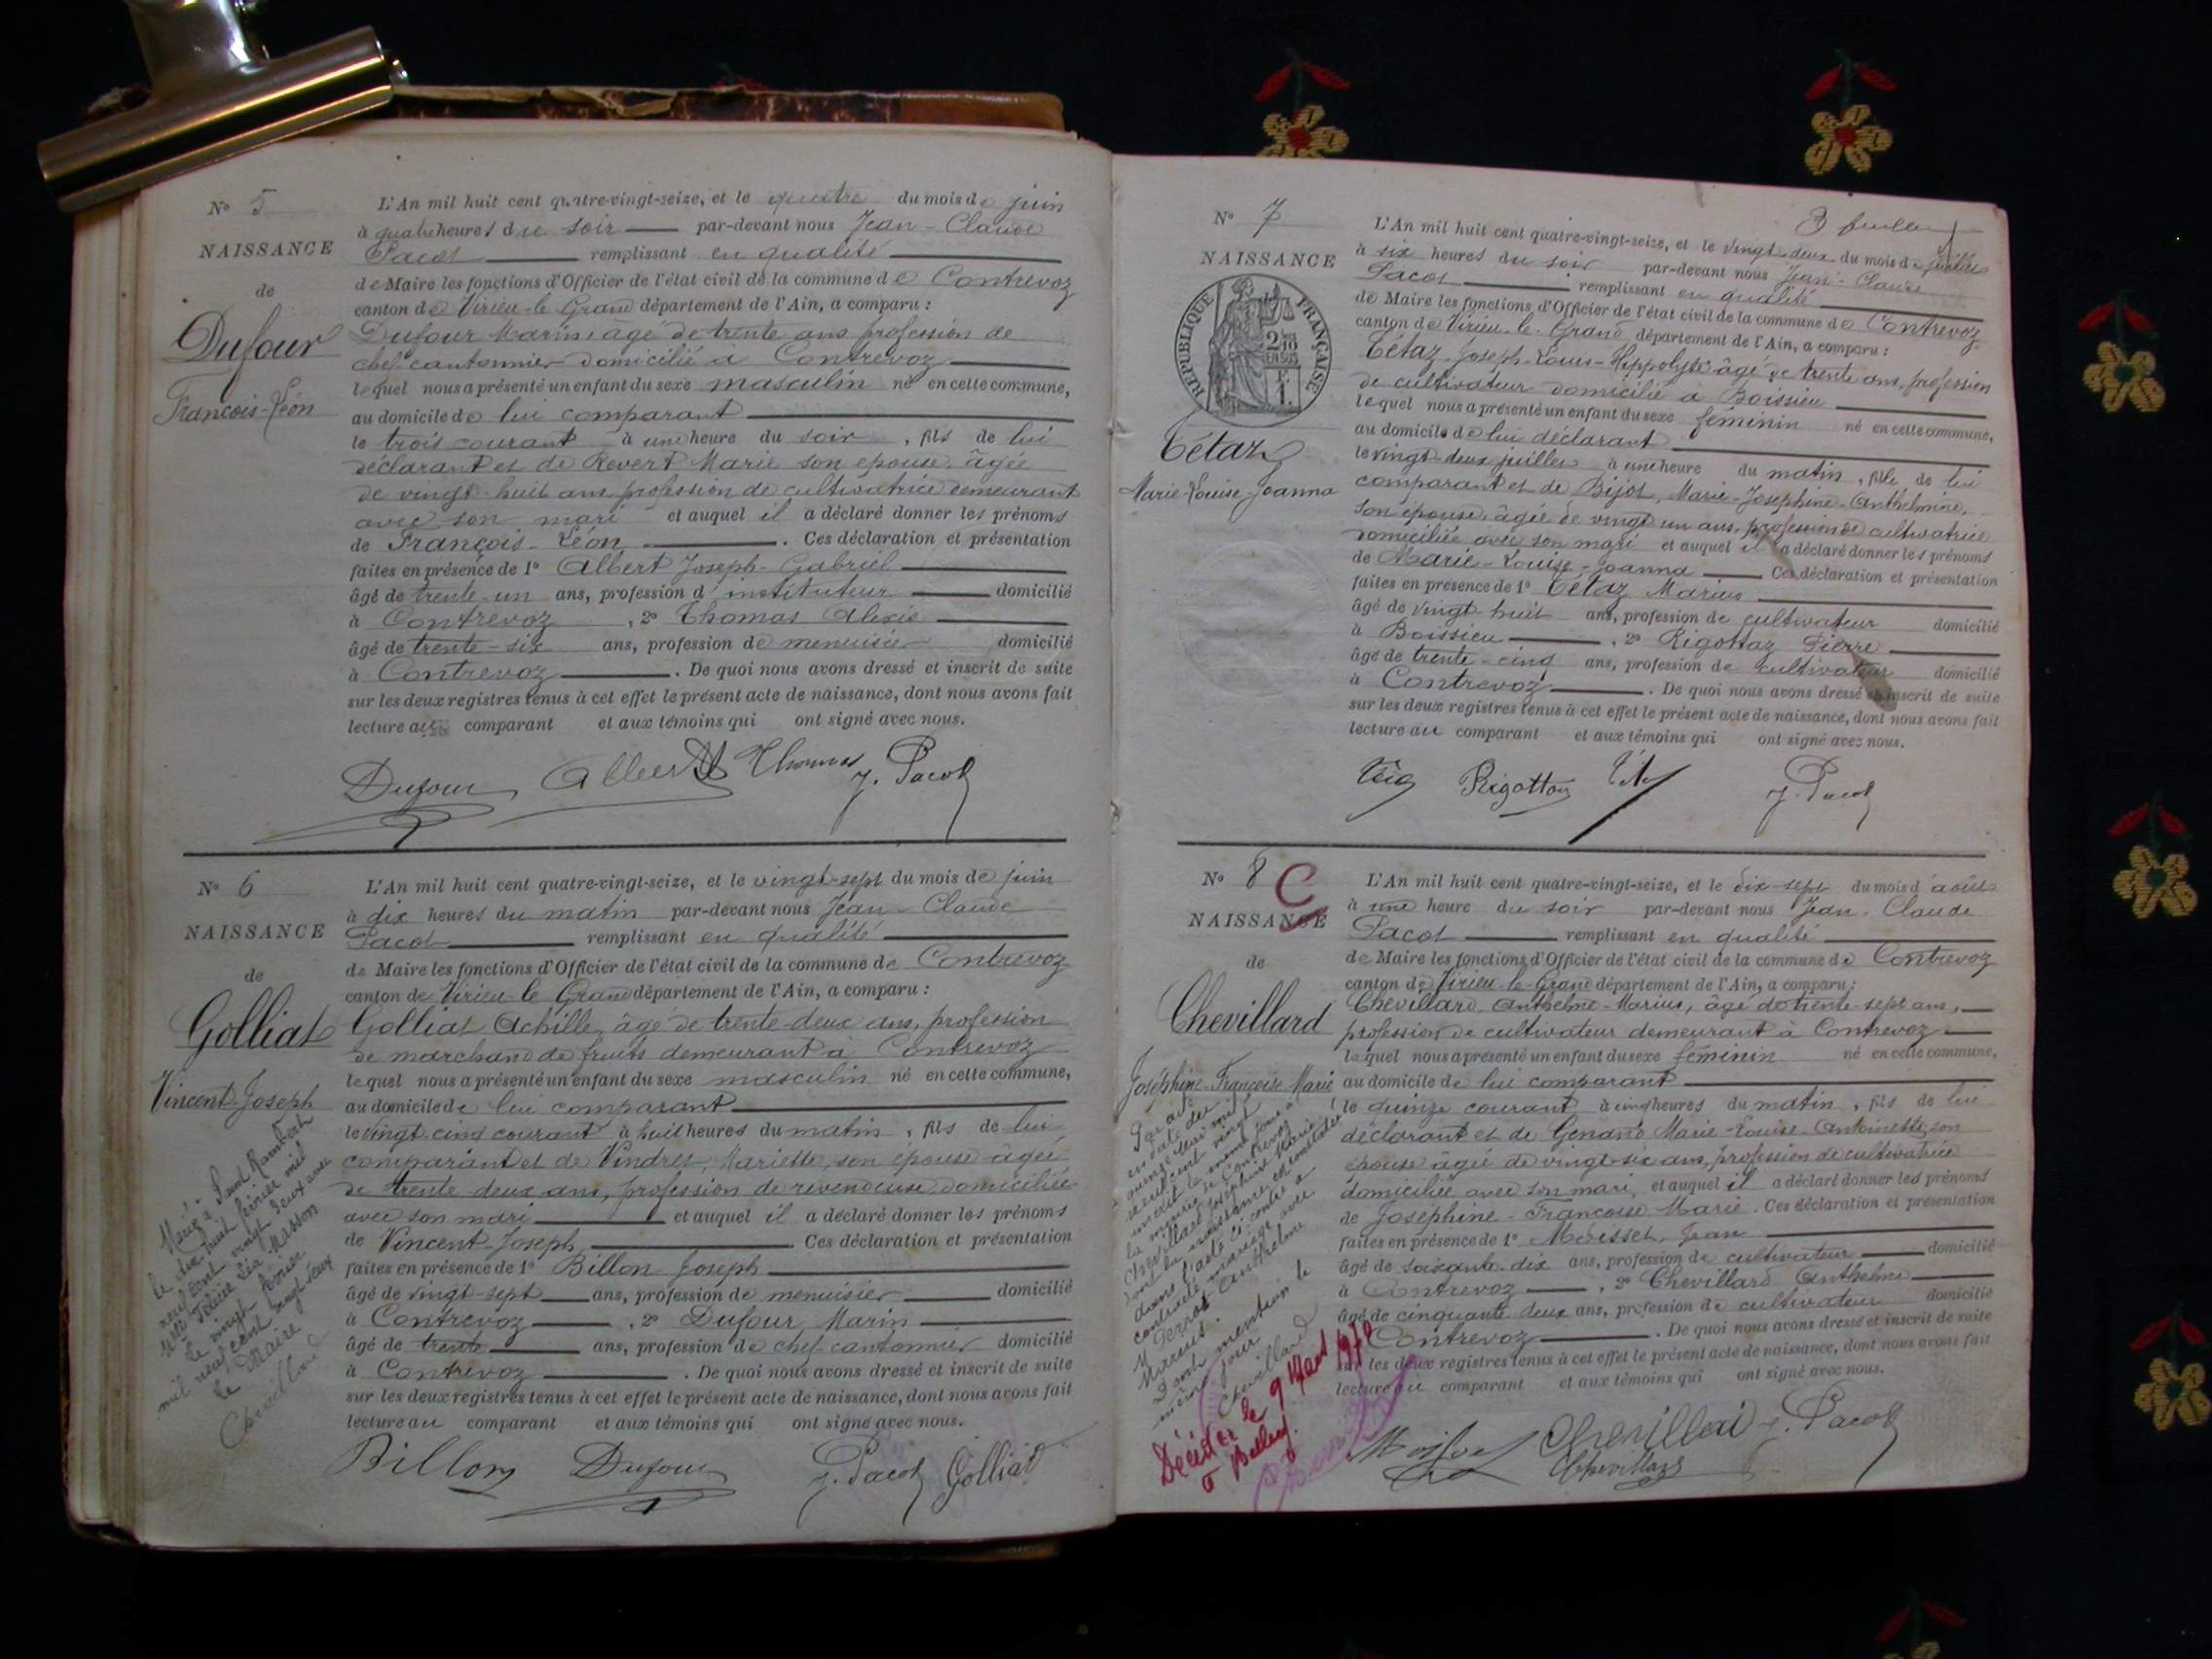 N° 5
NAISSANCE
de
Dufour
François-Léon
L'An mil huit cent quatre-vingt-seize, et le quatre du mois de juin
à quatre heures du soir par-devant nous Jean-Claude
Pacot remplissant en qualité
de Maire les fonctions d'Officier de l'état civil de la commune de Contrevoz
canton de Virieu-le-Grand département de l'Ain, a comparu :
Dufour Marin, agé de trente ans profession de
chef cantonnier domicilié à Contrevoz
lequel nous a présenté un enfant du sexe masculin né en cette commune,
au domicile de lui comparant
le trois courant à une heure du soir, fils de lui
déclarant et de Revert Marie son épouse, âgée
de vingt-huit ans, profession de cultivatrice demeurant
avec son mari et auquel il a déclaré donner les prénoms
de François-Léon. Ces déclaration et présentation
faites en présence de 1° Albert Joseph-Gabriel
âgé de trente-un ans, profession d'instituteur domicilié
à Contrevoz, 2° Thomas Alexis
âgé de trente-six ans, profession de menuisier domicilié
à Contrevoz. De quoi nous avons dressé et inscrit de suite
sur les deux registres tenus à cet effet le présent acte de naissance, dont nous avons fait
lecture au comparant et aux témoins qui ont signé avec nous.
Dufour Albert Thomas J. Pacot
N° 6
NAISSANCE
de
Golliat
Vincent-Joseph
L'An mil huit cent quatre-vingt-seize, et le vingt-sept du mois de juin
à dix heures du matin par-devant nous Jean-Claude
Pacot remplissant en qualité
de Maire les fonctions d'Officier de l'état civil de la commune de Contrevoz
canton de Virieu-le-Grand département de l'Ain, a comparu :
Golliat Achille, âgé de trente-deux ans, profession
de marchand de fruits demeurant à Contrevoz
lequel nous a présenté un enfant du sexe masculin né en cette commune,
au domicile de lui comparant
le vingt-cinq courant à huit heures du matin, fils de lui
comparant et de Vindret, Mariette, son épouse âgée
de trente-deux ans, profession de revendeuse domiciliée
avec son mari et auquel il a déclaré donner les prénoms
de Vincent-Joseph Ces déclaration et présentation
faites en présence de 1° Billon Joseph
âgé de vingt-sept ans, profession de menuisier domicilié
à Contrevoz, 2° Dufour Marin
âgé de trente ans, profession de chef cantonnier domicilié
à Contrevoz. De quoi nous avons dressé et inscrit de suite
sur les deux registres tenus à cet effet le présent acte de naissance, dont nous avons fait
lecture au comparant et aux témoins qui ont signé avec nous.
Billon Dufour J. Pacot Golliat
Marié à Saint Rambert
le dix huit février mil
neuf cent vingt deux avec
Melle Félicie Léa Masson
le vingt février
mil neuf cent vingt deux
Le Maire
Chevillard
N° 7
NAISSANCE
RÉPUBLIQUE FRANÇAISE
2/10 EN SUS
Tétaz
Marie-Louise-Joanna
L'An mil huit cent quatre-vingt-seize, et le vingt-deux du mois de juillet
à six heures du soir par-devant nous Jean-Claude
Pacot remplissant en qualité
de Maire les fonctions d'Officier de l'état civil de la commune de Contrevoz
canton de Virieu-le-Grand département de l'Ain, a comparu :
Tétaz Joseph-Louis-Hippolyte âgé de trente ans, profession
de cultivateur domicilié à Boissieu
lequel nous a présenté un enfant du sexe féminin né en cette commune,
au domicile de lui déclarant
le vingt-deux juillet à une heure du matin, fille de lui
comparant et de Bijot, Marie-Josephine-Anthelmine,
son épouse, âgée de vingt un ans, profession de cultivatrice
domiciliée avec son mari et auquel il a déclaré donner les prénoms
de Marie-Louise-Joanna Ces déclaration et présentation
faites en présence de 1° Tétaz Marius
âgé de vingt-huit ans, profession de cultivateur domicilié
à Boissieu, 2° Rigottaz Pierre
âgé de trente-cinq ans, profession de cultivateur domicilié
à Contrevoz. De quoi nous avons dressé et inscrit de suite
sur les deux registres tenus à cet effet le présent acte de naissance, dont nous avons fait
lecture au comparant et aux témoins qui ont signé avec nous.
Rigottaz J. Pacot
N° 8 C
NAISSANCE
de
Chevillard
Joséphine-Françoise-Marie
L'An mil huit cent quatre-vingt-seize, et le dix-sept du mois d'août
à une heure du soir par-devant nous Jean-Claude
Pacot remplissant en qualité
de Maire les fonctions d'Officier de l'état civil de la commune de Contrevoz
canton de Virieu-le-Grand département de l'Ain, a comparu :
Chevillard Anthelme-Marius, âgé de trente-sept ans,
profession de cultivateur demeurant à Contrevoz
lequel nous a présenté un enfant du sexe féminin né en cette commune,
au domicile de lui comparant
le quinze courant à cinq heures du matin, fils de lui
déclarant et de Genand Marie-Louise-Antoinette, son
épouse âgée de vingt-six ans, profession de cultivatrice
domiciliée avec son mari, et auquel il a déclaré donner les prénoms
de Joséphine-Françoise Marie. Ces déclaration et présentation
faites en présence de 1° Moisset, Jean
âgé de soixante-dix ans, profession de cultivateur domicilié
à Contrevoz, 2° Chevillard Anthelme
âgé de cinquante-deux ans, profession de cultivateur domicilié
Contrevoz. De quoi nous avons dressé et inscrit de suite
sur les deux registres tenus à cet effet le présent acte de naissance, dont nous avons fait
lecture au comparant et aux témoins qui ont signé avec nous.
Chevillard J. Pacot
Chevillard
Par acte
en date du
quinze
neuf cent vingt
la mairie de Contrevoz
Chevillard Joséphine Marie
dont la naissance est constatée
dans l'acte ci-contre a
contracté mariage avec
Anthelme
Marius.
Dont mention le
même jour
Chevillard
Décédée le 9 Mars
à Belley.